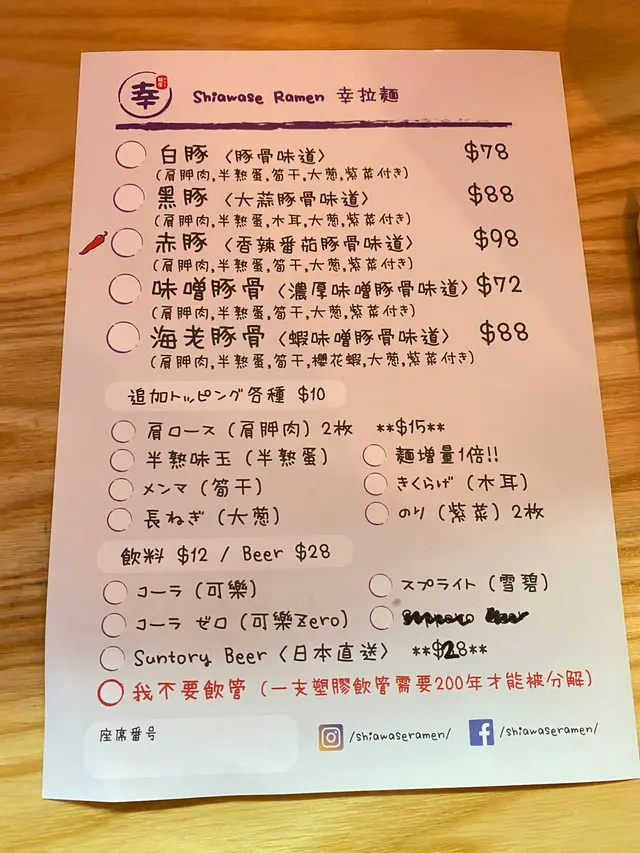 幸 Shiawase Ramen 幸拉麵
白豚〈豚骨味道〉 $78
(肩胛肉,半熟蛋,筍干,大葱,紫菜付き)
黑豚〈大蒜豚骨味道〉 $88
(肩胛肉,半熟蛋,木耳,大葱,紫菜付き)
赤豚〈香辣番茄豚骨味道〉 $98
(肩胛肉,半熟蛋,筍干,大葱,紫菜付き)
味噌豚骨〈濃厚味噌豚骨味道〉 $72
(肩胛肉,半熟蛋,筍干,大葱,紫菜付き)
海老豚骨〈蝦味噌豚骨味道〉 $88
(肩胛肉,半熟蛋,筍干,櫻花蝦,大葱,紫菜付き)
追加トッピング各種 $10
肩ロース (肩胛肉) 2枚 **$15**
半熟味玉 (半熟蛋) 麵增量1倍!!
メンマ (筍干) きくらげ (木耳)
長ねぎ (大葱) のり (紫菜) 2枚
飲料 $12 / Beer $28
コーラ (可樂) スプライト (雪碧)
コーラ ゼロ (可樂Zero)
Suntory Beer〈日本直送〉 **$28**
我不要飲管 (一支塑膠飲管需要200年才能被分解)
座席番号 /shiawaseramen/ /shiawaseramen/